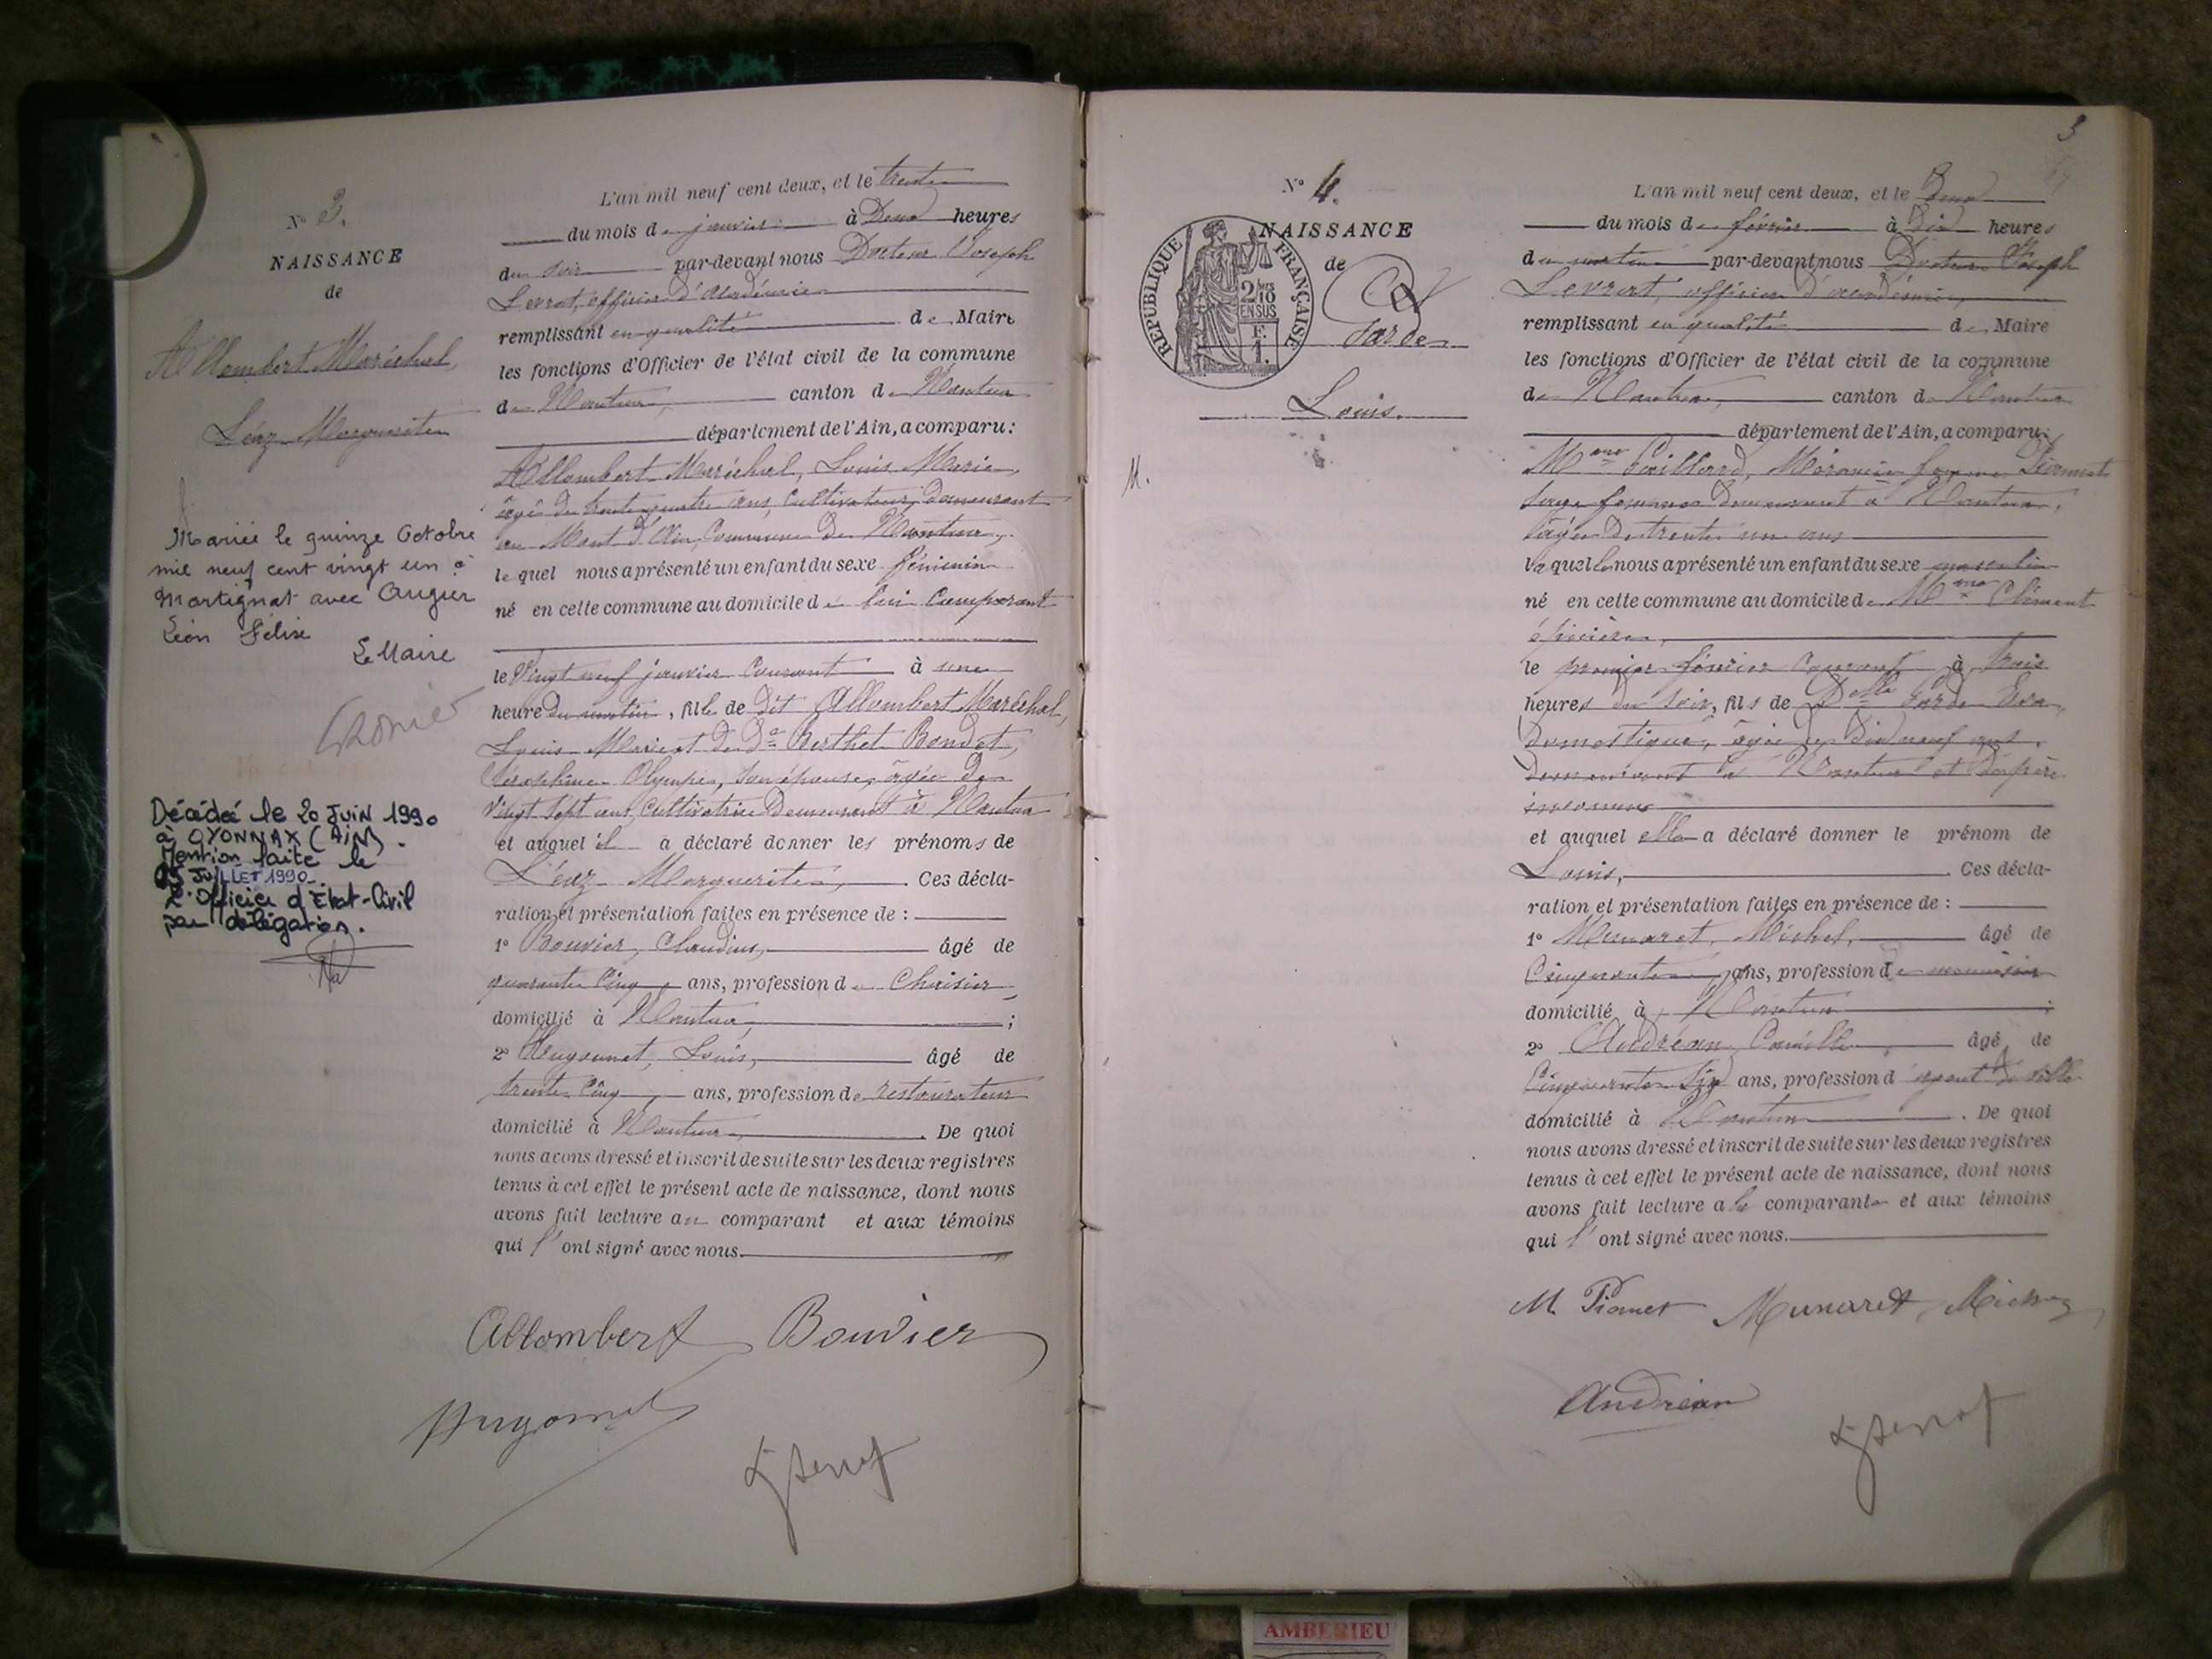 N° 3.
NAISSANCE
de
Allombert Maréchal,
Léaz Marguerite
Mariée le quinze Octobre
mil neuf cent vingt un à
Martignat avec Augier
Léon Félix
Le Maire
Décédée le 20 JUIN 1990
à OYONNAX (AiN).
Mention faite le
05 JUILLET 1990
L'Officier d'Etat-Civil
par délégation.
L'an mil neuf cent deux, et le trente
du mois de janvier à Deux heures
du soir par-devant nous Docteur Joseph
Levrat, officier d'Académie
remplissant en qualité de Maire
les fonctions d'Officier de l'état civil de la commune
de Nantua, canton de Nantua
département de l'Ain, a comparu:
Allombert Maréchal, Louis Marie,
âgé de trente quatre ans, Cultivateur, demeurant
au Mont d'Ain, Commune de Nantua,
lequel nous a présenté un enfant du sexe féminin
né en cette commune au domicile de lui Comparant
le Vingt neuf janvier Courant à une
heure du matin, fille de dit Allombert Maréchal,
Louis Marie et de De Berthet Bondet,
Joséphine Olympe, son épouse, âgée de
Vingt sept ans, Cultivatrice Demeurant à Nantua
et auquel il a déclaré donner les prénoms de
Léaz Marguerite, . Ces décla-
ration et présentation faites en présence de :
1° Bouvier, Claudius, âgé de
quarante Cinq ans, profession de Chaisier,
domicilié à Nantua, ;
2° Hugonnet, Louis, âgé de
trente Cinq, ans, profession de restaurateur
domicilié à Nantua, . De quoi
nous avons dressé et inscrit de suite sur les deux registres
tenus à cet effet le présent acte de naissance, dont nous
avons fait lecture au comparant et aux témoins
qui l'ont signé avec nous.
Allombert Bouvier
Hugonnet
3
N° 4.
NAISSANCE
de
RÉPUBLIQUE FRANÇAISE
2/10
EN SUS
F.
1.
Jarde
Louis.
M.
L'an mil neuf cent deux, et le Deux
du mois de février à Dix heures
du matin par-devant nous Docteur Joseph
Levrat, officier d'académie,
remplissant en qualité de Maire
les fonctions d'Officier de l'état civil de la commune
de Nantua, canton de Nantua
département de l'Ain, a comparu:
Mme femme Piamet
Sage femme demeurant à Nantua,
âgée de trente un ans
laquelle nous a présenté un enfant du sexe masculin
né en cette commune au domicile de Mme Clément
épicière,
le premier février Courant à trois
heures du soir, fils de Delle Jarde
Domestique, âgée de Dix neuf ans,
Demeurant à Nantua et de père
inconnu
et auquel elle a déclaré donner le prénom de
Louis, . Ces décla-
ration et présentation faites en présence de :
1° Munaret, Michel, âgé de
Cinquante ans, profession de menuisier
domicilié à Nantua ;
2° Andréan, Camille âgé de
Cinquante Six ans, profession d'agent de ville
domicilié à Nantua . De quoi
nous avons dressé et inscrit de suite sur les deux registres
tenus à cet effet le présent acte de naissance, dont nous
avons fait lecture a la comparante et aux témoins
qui l'ont signé avec nous.
M. Piamet Munaret Michel
Andréan
AMBERIEU